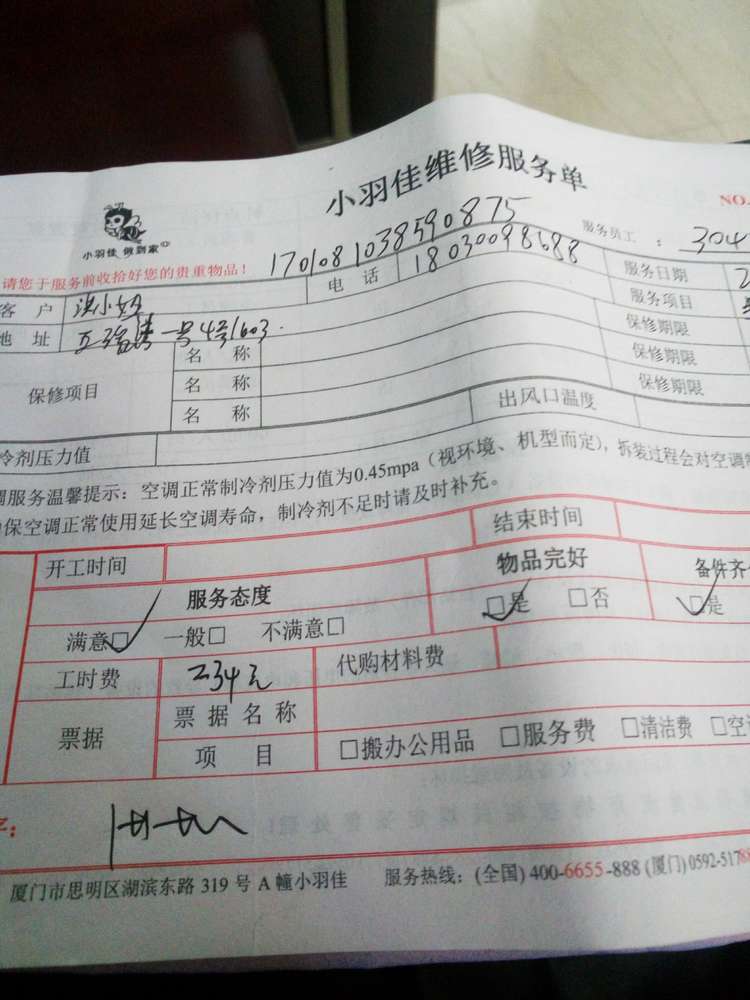 小羽佳维修服务单
NO.
小羽佳 做到家
170108 1038590875
服务员工 : 304
请您于服务前收拾好您的贵重物品!
客 户 洪小姐 电 话 18030098688 服务日期 2
地 址 一号4号1603 服务项目
保修项目 名 称 保修期限
名 称 保修期限
名 称 保修期限
冷剂压力值 出风口温度
调服务温馨提示:空调正常制冷剂压力值为0.45mpa(视环境、机型而定),拆装过程会对空调制
保空调正常使用延长空调寿命,制冷剂不足时请及时补充。
开工时间 结束时间
服务态度 物品完好 备件齐
满意☑ 一般□ 不满意□ ☑是 □否 ☑是
工时费 234元 代购材料费
票据 票据名称
项 目 □搬办公用品 □服务费 □清洁费 □空
字:
厦门市思明区湖滨东路 319 号 A 幢小羽佳 服务热线:(全国) 400-6655-888 (厦门) 0592-517